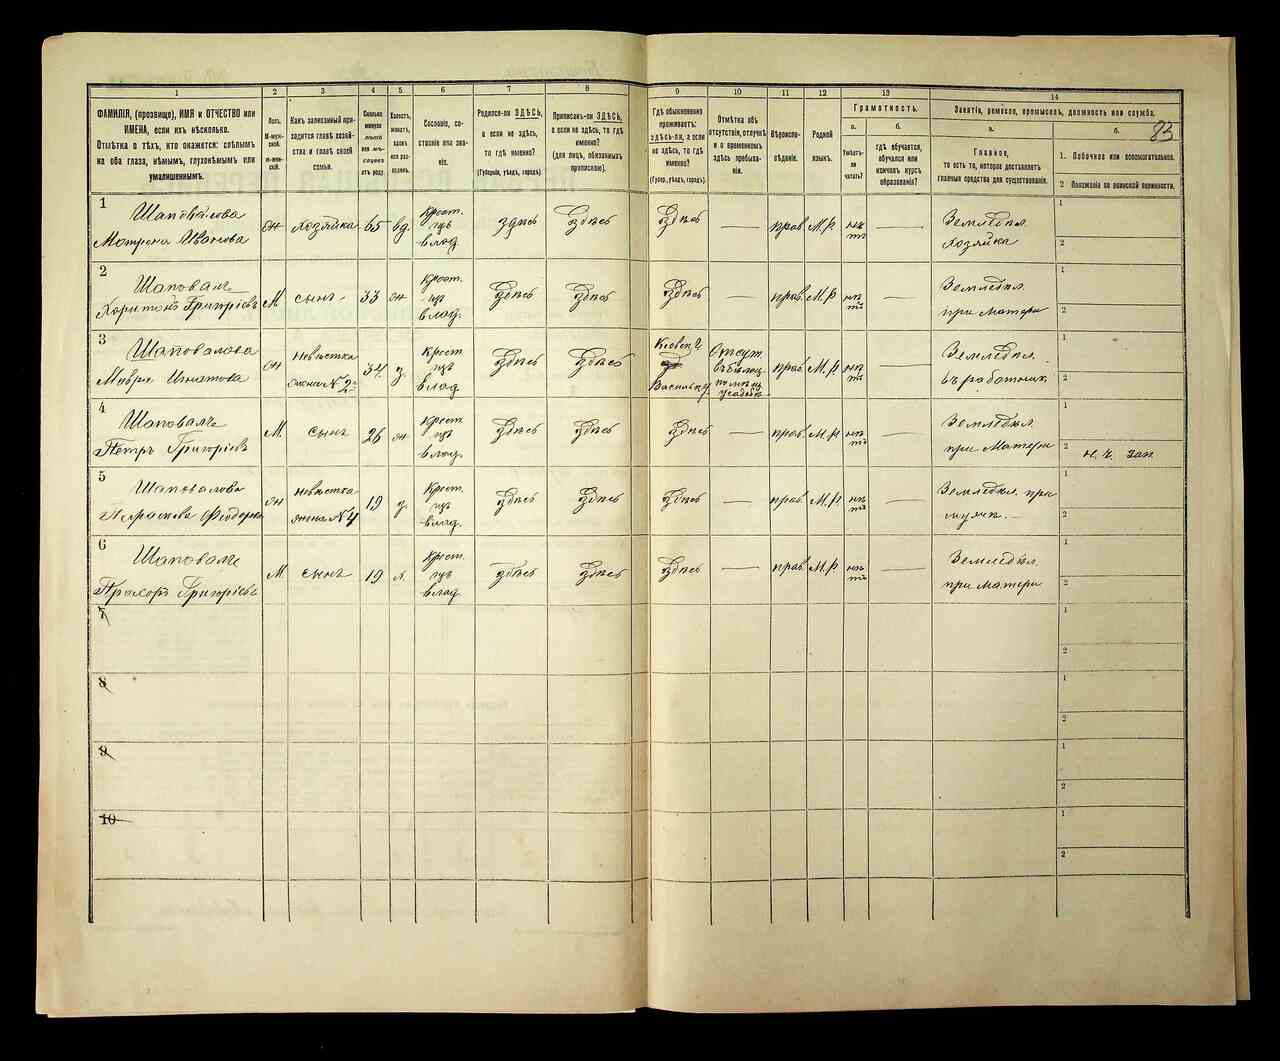 1
2
3
4
5
6
7
8
9
10
11
12
13
14
ФАМИЛІЯ, (прозвище), ИМЯ и ОТЧЕСТВО или
ИМЕНА, если ихъ нѣсколько.
Отмѣтка о тѣхъ, кто окажется: слѣпымъ
на оба глаза, нѣмымъ, глухонѣмымъ или
умалишеннымъ.
Полъ.
М-муж-
ской.
Ж-жен-
скій.
Какъ записанный при-
ходится главѣ хозяй-
ства и главѣ своей
семьи.
Сколько
минуло
лѣтъ
или мѣ-
сяцевъ
отъ роду.
Холостъ,
женатъ,
вдовъ
или раз-
веденъ.
Сословіе, со-
стояніе или зва-
ніе.
Родился-ли ЗДѢСЬ,
а если не здѣсь,
то гдѣ именно?
(Губернія, уѣздъ, городъ).
Приписанъ-ли ЗДѢСЬ,
а если не здѣсь, то гдѣ
именно?
(для лицъ, обязанныхъ
припискою).
Гдѣ обыкновенно
проживаетъ:
здѣсь-ли, а если
не здѣсь, то гдѣ
именно?
(Губер., уѣздъ, городъ).
Отмѣтка объ
отсутствіи, отлучкѣ
и о временномъ
здѣсь пребыва-
ніи.
Вѣроиспо-
вѣданіе.
Родной
языкъ.
Грамотность.
а.
Умѣетъ-
ли
читать?
б.
гдѣ обучается,
обучался или
кончилъ курсъ
образованія?
Занятіе, ремесло, промыселъ, должность или служба.
а.
Главное,
то есть то, которое доставляетъ
главныя средства для существованія.
б.
1. Побочное или вспомогательное.
2 Положеніе по воинской повинности.
83
1
Шаповалова
Матрена Иванова
ж
хозяйка
65
вд.
Крест.
изъ
влад.
здѣсь
здѣсь
здѣсь
—
прав.
М.Р.
нѣ
тъ
—
Земледѣл.
хозяйка
1
2
2
Шаповалъ
Харитонъ Григоріевъ
М
сынъ
33
ж
Крест.
изъ
влад.
здѣсь
здѣсь
здѣсь
—
прав.
М.Р.
нѣ
тъ
—
Земледѣл.
при матери
1
2
3
Шаповалова
Мавра Игнатова
ж
невѣстка
жена № 2
34
з.
Крест
изъ
влад.
здѣсь
здѣсь
Кіевск. г.
Васильк. у.
Отсут.
прав.
М.Р.
нѣ
тъ
—
Земледѣл.
въ работник.
1
2
4
Шаповалъ
Петръ Григоріевъ
М.
сынъ
26
ж
Крест
изъ
влад.
здѣсь
здѣсь
здѣсь
—
прав.
М.Р
нѣ
тъ
—
Земледѣл.
при матери
1
2
н. ч. зап.
5
Шаповалова
Параскева Федорова
ж
невѣстка
жена № 4
19
з.
Крест.
изъ
влад.
здѣсь
здѣсь
здѣсь
—
прав.
М.Р.
нѣ
тъ
—
Земледѣл. при
мужѣ.
1
2
6
Шаповалъ
Прохоръ Григоріевъ
М.
сынъ
19
х.
Крест.
изъ
влад.
здѣсь
здѣсь
здѣсь
—
прав.
М.Р.
нѣ
тъ
—
Земледѣл.
при матери
1
2
7
1
2
8
1
2
9
1
2
10
1
2